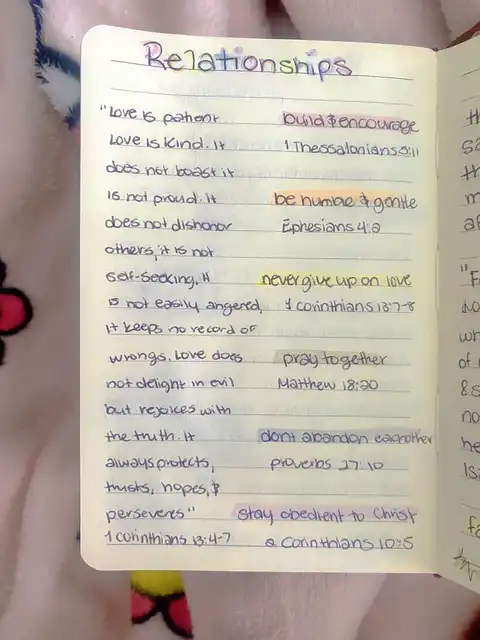 Relationships
"Love is patient
Love is kind. It
does not boast it
is not proud. It
does not dishonor
others, it is not
self-seeking, it
is not easily angered,
it keeps no record of
wrongs. Love does
not delight in evil
but rejoices with
the truth. It
always protects,
trusts, hopes, &
perseveres"
1 Corinthians 13:4-7
build & encourage
1 Thessalonians 5:11
be humble & gentle
Ephesians 4:2
never give up on love
1 corinthians 13:7-8
pray together
Matthew 18:20
dont abandon eachother
proverbs 27:10
stay obedient to Christ
2 Corinthians 10:5